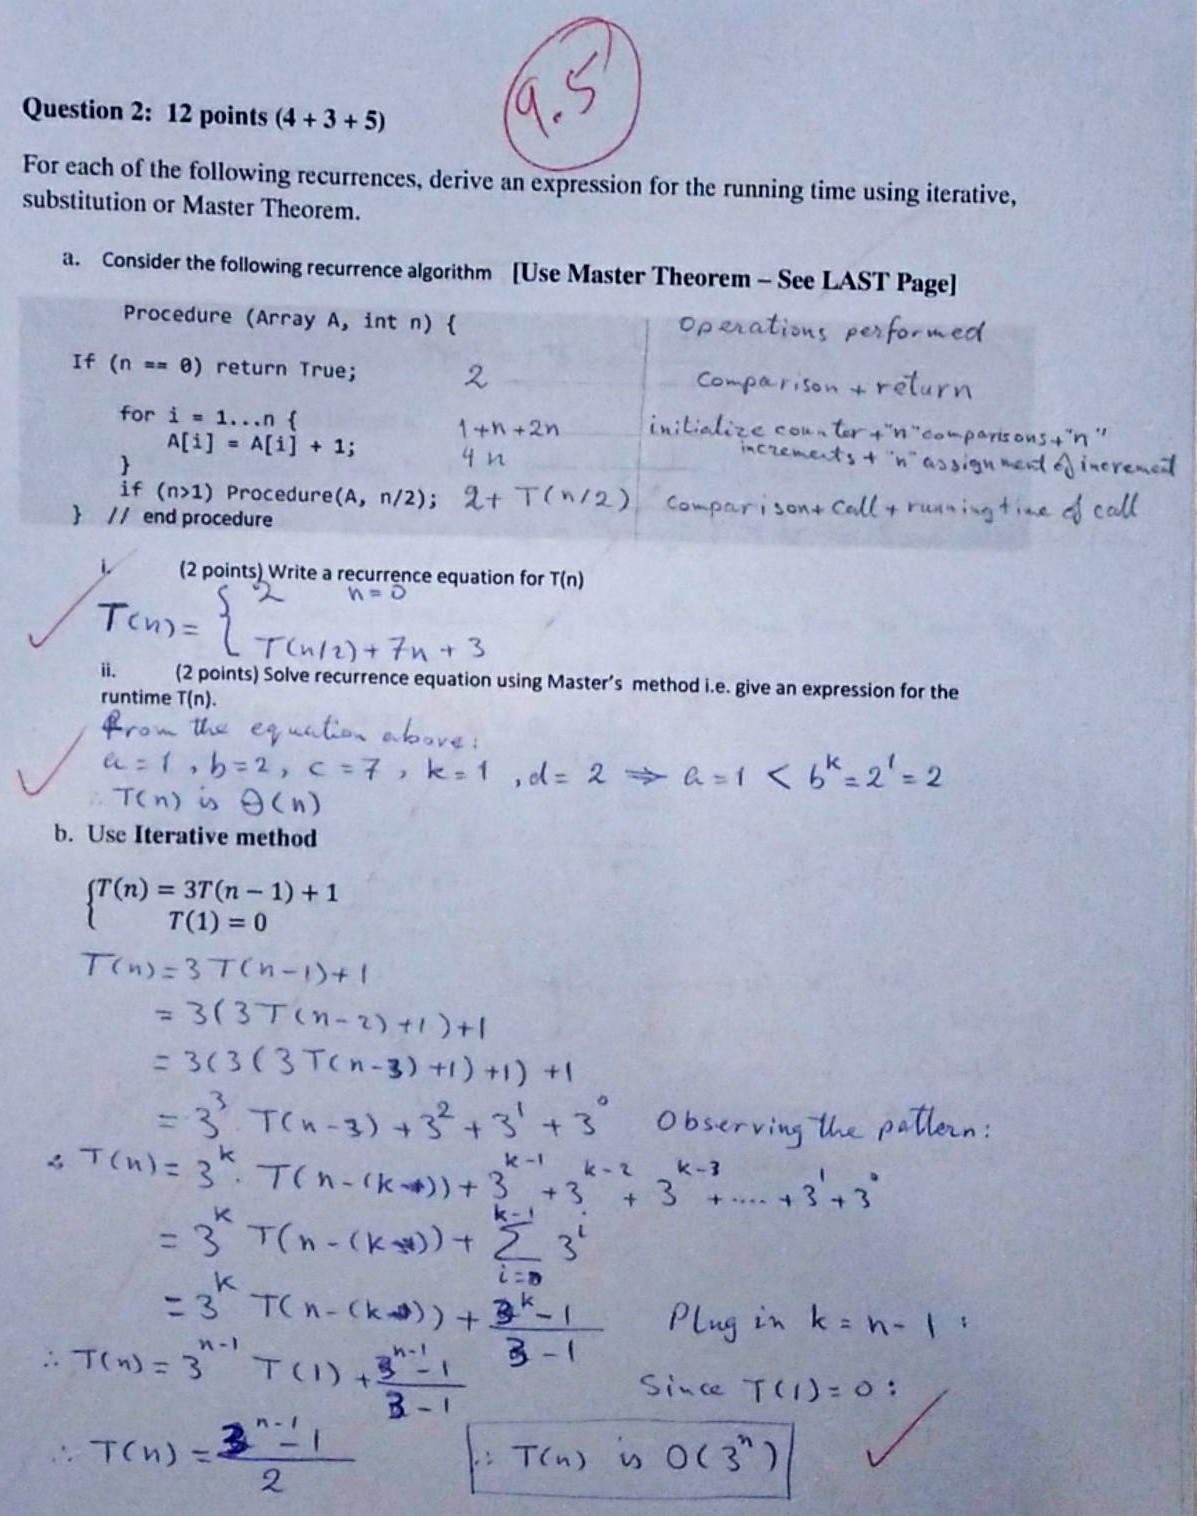 9.5
Question 2: 12 points (4 + 3 + 5)
For each of the following recurrences, derive an expression for the running time using iterative,
substitution or Master Theorem.
a. Consider the following recurrence algorithm [Use Master Theorem – See LAST Page]
Procedure (Array A, int n) { Operations performed
If (n == 0) return True; 2 Comparison + return
for i = 1...n { 1+n+2n initialize counter + "n" comparisons + "n"
A[i] = A[i] + 1; 4n increments + "n" assignment of increment
}
if (n>1) Procedure(A, n/2); 2+ T(n/2) Comparison + Call + running time of call
} // end procedure
i. (2 points) Write a recurrence equation for T(n)
T(n) = { 2 n=0
T(n/2) + 7n + 3
ii. (2 points) Solve recurrence equation using Master's method i.e. give an expression for the
runtime T(n).
from the equation above:
a=1, b=2, c=7, k=1, d=2 ⇒ a=1 < b^k = 2^1 = 2
∴ T(n) is Θ(n)
b. Use Iterative method
{T(n) = 3T(n − 1) + 1
T(1) = 0
T(n) = 3T(n-1)+1
= 3(3T(n-2)+1)+1
= 3(3(3T(n-3)+1)+1)+1
= 3^3 T(n-3) + 3^2 + 3^1 + 3^0 Observing the pattern:
∴ T(n) = 3^k . T(n-(k)) + 3^k-1 + 3^k-2 + 3^k-3 + ..... + 3^1 + 3^0
= 3^k T(n-(k)) + ∑_{i=0}^{k-1} 3^i
= 3^k T(n-(k)) + (3^k - 1)/(3-1) Plug in k = n-1:
∴ T(n) = 3^n-1 T(1) + (3^n-1 - 1)/(3-1) Since T(1)=0:
∴ T(n) = (3^n-1 - 1)/2 ∴ T(n) is O(3^n)